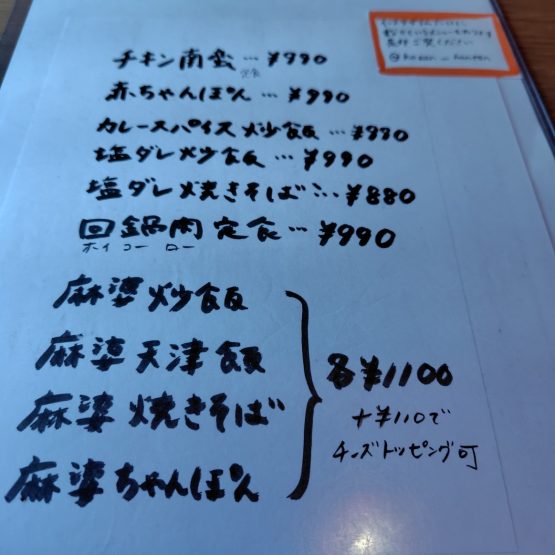 チキン南蛮…¥990
定食
赤ちゃんぽん…¥990
カレースパイス炒飯…¥990
塩ダレ炒飯…¥990
塩ダレ焼きそば…¥880
回鍋肉定食…¥990
ホイコーロー
麻婆炒飯
麻婆天津飯
麻婆焼きそば
麻婆ちゃんぽん
各¥1100
+¥110で
チーズトッピング可
ご覧ください